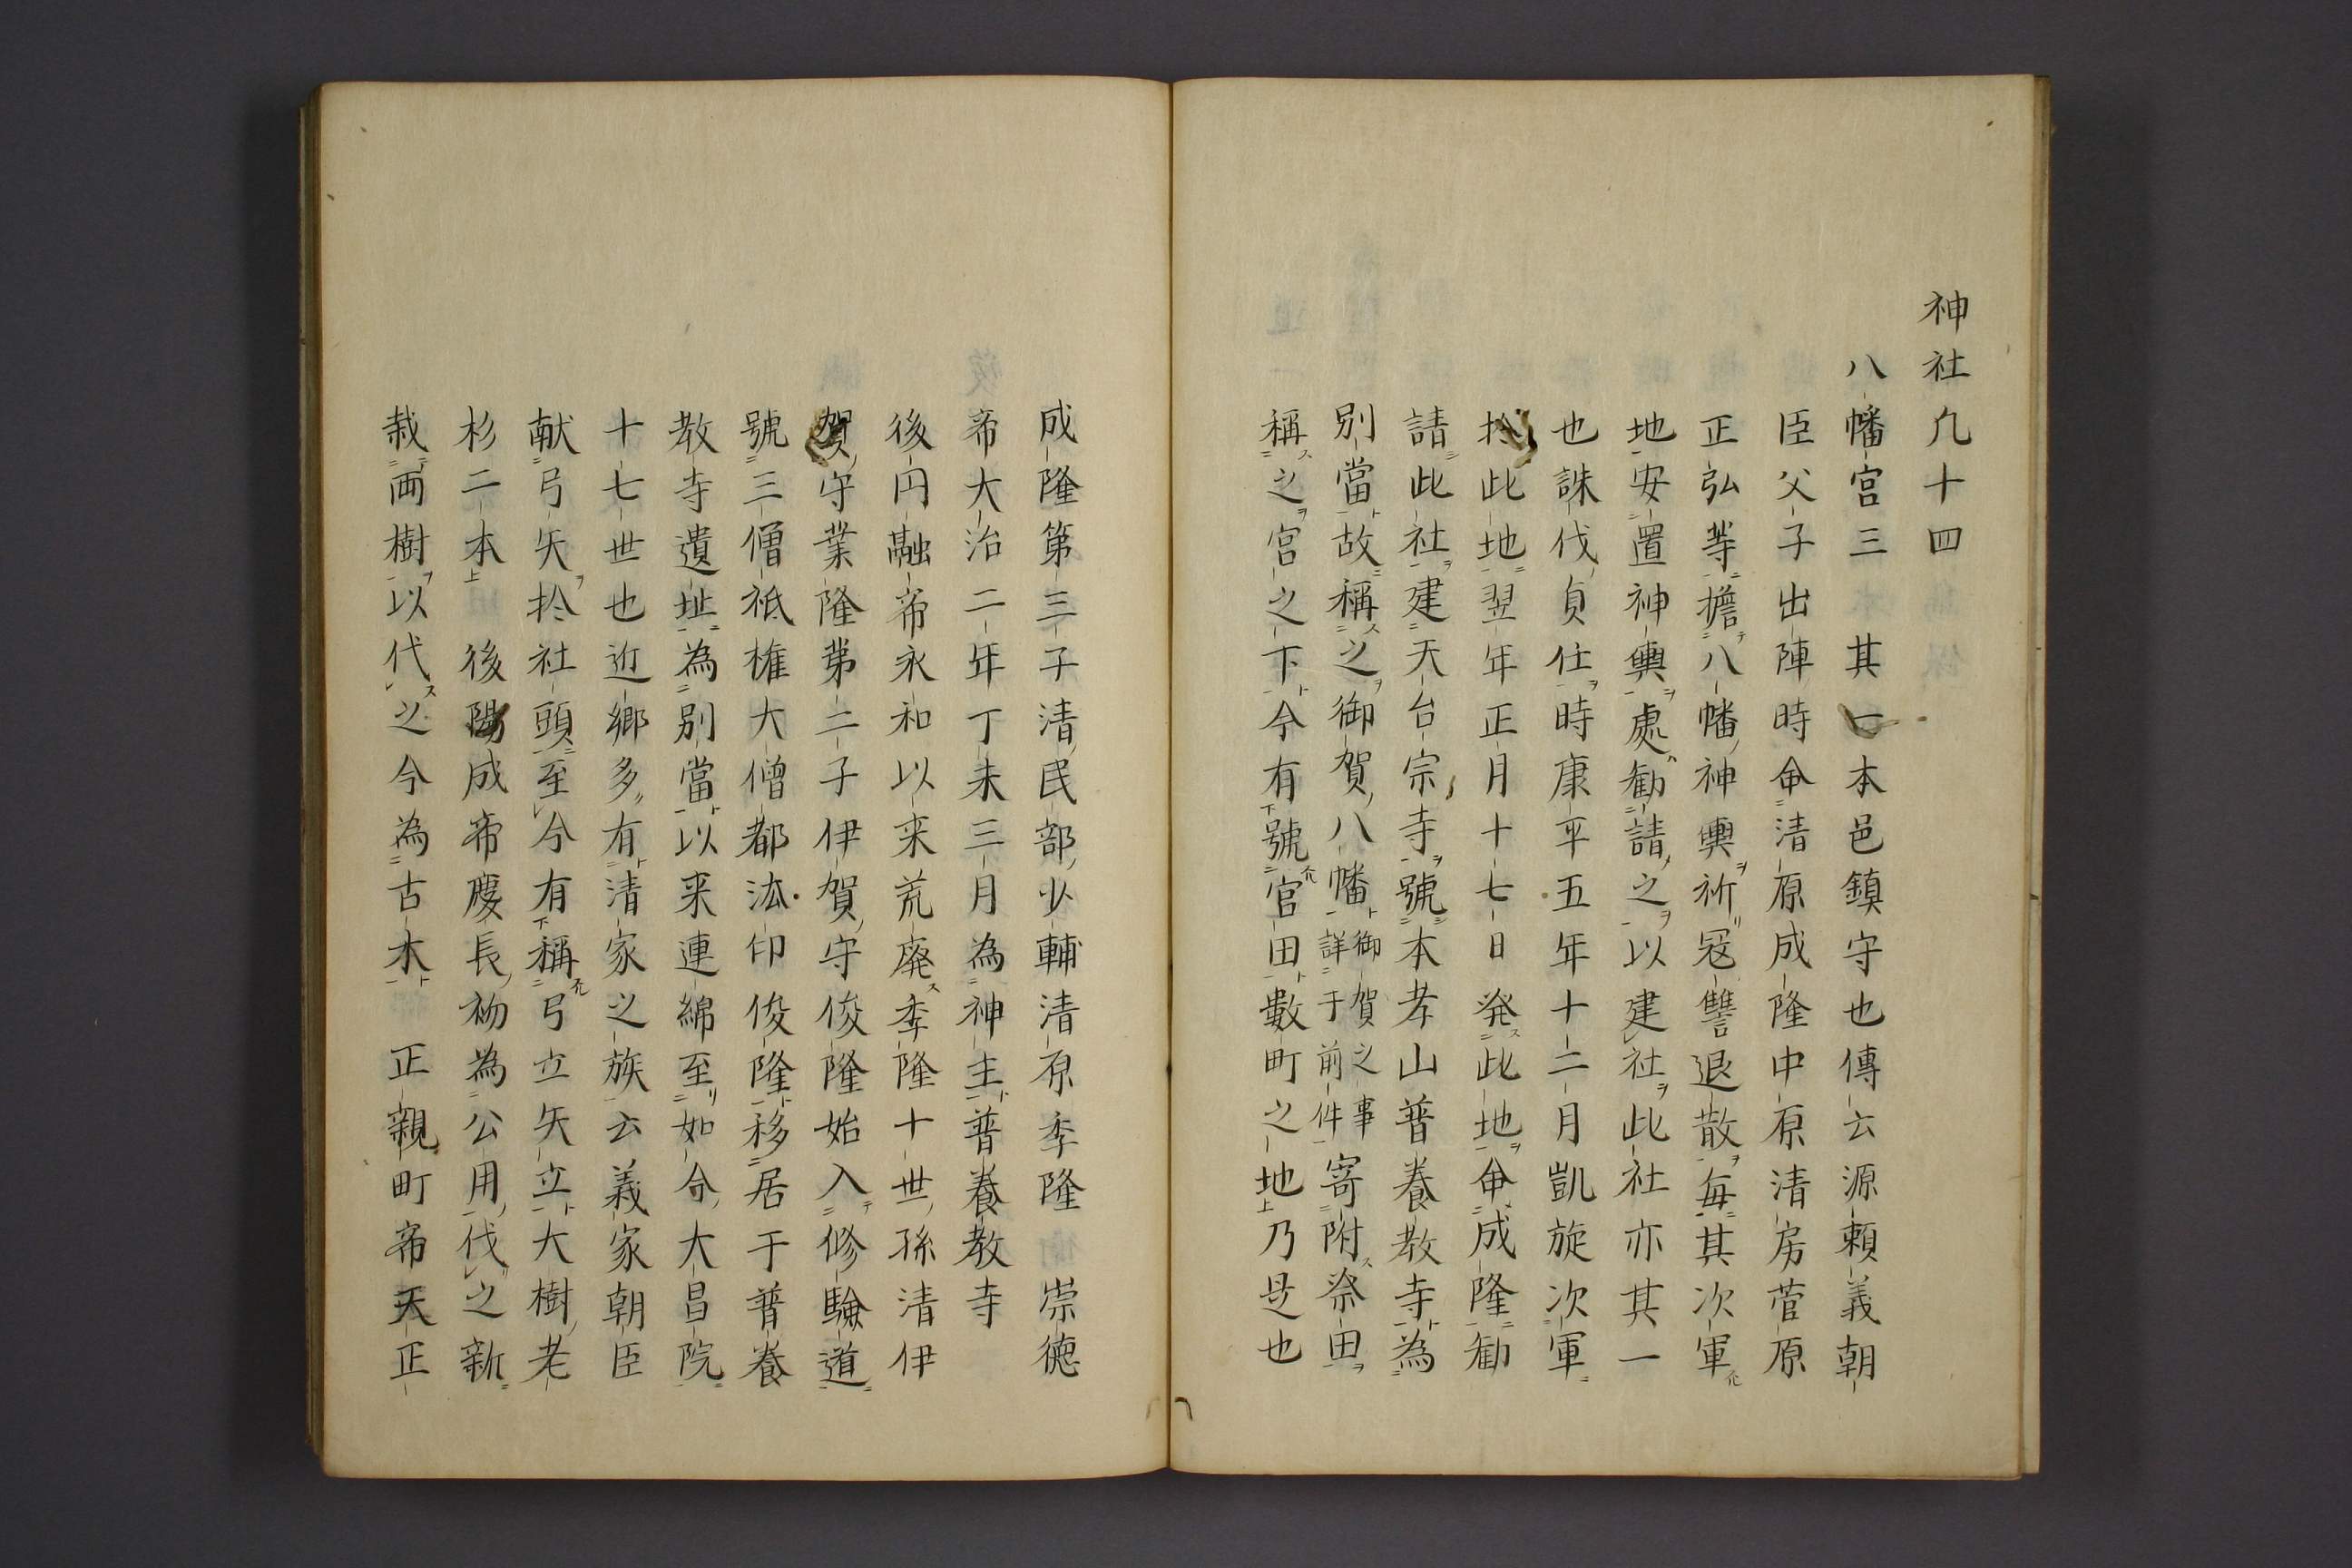 神社凢十四
八幡宮三　其一本邑鎮守也傳云源頼義朝
臣父子出陣時命清原成隆中原清房菅原
正弘等擔八幡神輿祈冦讐退散毎其次軍
地安置神輿處勧請之以建社此社亦其一
也誅伐貞任時康平五年十二月凱旋次軍
扵此地翌年正月十七日発此地命成隆勧
請此社建天台宗寺號本孝山普養教寺為
別當故稱之御賀八幡御賀之事詳于前件寄附祭田
稱之宮之下今有號官田數町之地乃是也
成隆第三子清民部少輔清原季隆　崇徳
帝大治二年丁未三月為神主普養教寺
後円融帝永和以来荒廃季隆十世孫清伊
賀守業隆第二子伊賀守俊隆始入修驗道
號三僧祇権大僧都法印俊隆移居于普養
教寺遺址為別當以来連綿至如今大昌院
十七世也近郷多有清家之族云義家朝臣
献弓矢扵社頭至今有稱弓立矢立大樹老
杉二本　後陽成帝慶長初為公用伐之新
栽両樹以代之今為古木　正親町帝天正